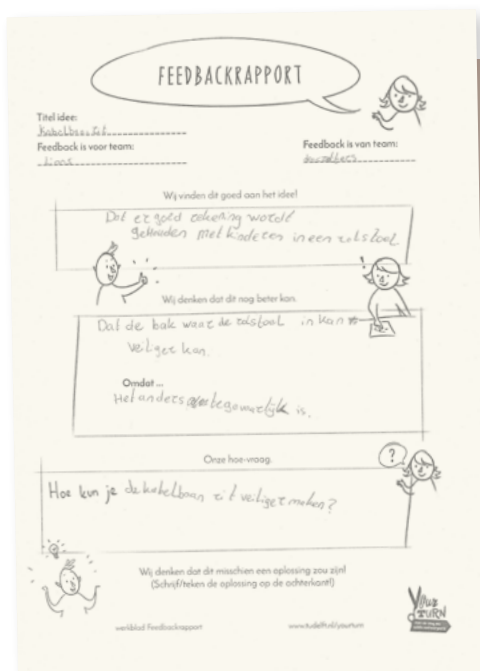 FEEDBACKRAPPORT
Titel idee:
Feedback is voor team:
Lions
Feedback is van team:
Wij vinden dit goed aan het idee!
Dat er goed rekening wordt
gehouden met kinderen in een rolstoel
Wij denken dat dit nog beter kan.
Dat de bak waar de rolstoel in kan
veiliger kan.
Omdat ...
Het anders is.
Onze hoe-vraag.
?
Hoe kun je de kabelbaan rit veiliger maken?
Wij denken dat dit misschien een oplossing zou zijn!
(Schrijf/teken de oplossing op de achterkant!)
werkblad Feedbackrapport
www.tudelft.nl/yourturn
YOUR
TURN